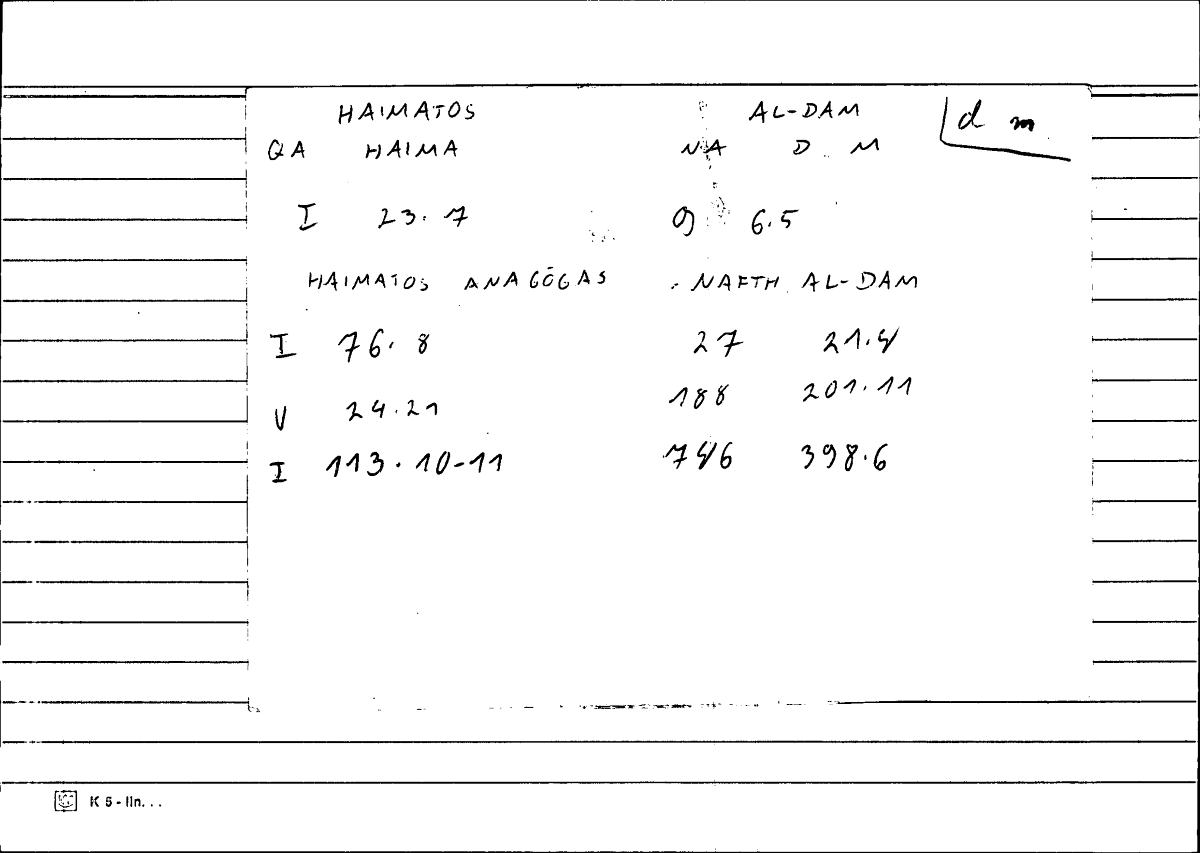 HAIMATOS AL-DAM d m
QA HAIMA NA D M
I 23.7 9 6.5
HAIMATOS ANAGŌGAS NAFTH AL-DAM
I 76.8 27 21.4
V 24.21 188 201.11
I 113.10-11 746 398.6
K 5 - lin...